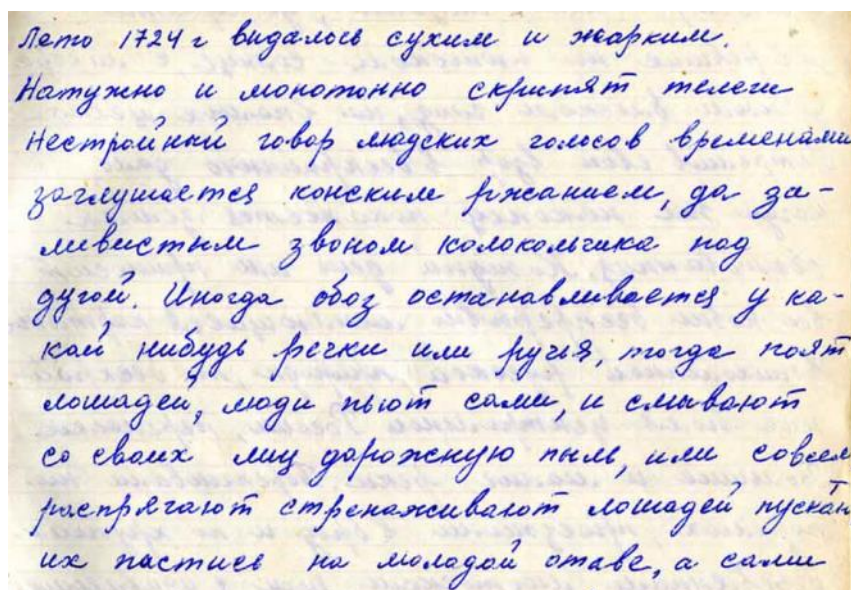 Лето 1724 г выдалось сухим и жарким.
Натужно и монотонно скрипят телеги
Нестройный говор людских голосов временами
заглушается конским ржанием, да за-
ливистым звоном колокольчика под
дугой. Иногда обоз останавливается у ка-
кой нибудь речки или ручья, тогда поят
лошадей, люди пьют сами, и смывают
со своих лиц дорожную пыль, или совсем
распрягают стренаживают лошадей пускают
их пастись на молодой отаве, а сами